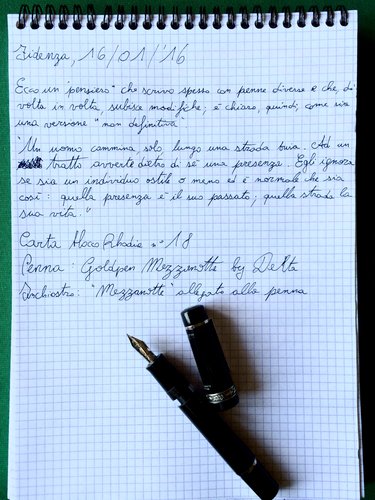 Fidenza, 16/01/'16
Ecco un "pensiero" che scrivo spesso con penne diverse e che, di
volta in volta, subisce modifiche; è chiaro, quindi, come sia
una versione "non definitiva"
"Un uomo cammina solo, lungo una strada buia. Ad un
tratto avverte dietro di sé una presenza. Egli ignora
se sia un individuo ostile o meno ed è normale che sia
così: quella presenza è il suo passato; quella strada la
sua vita."
Carta Bloco Rhodia n° 18
Penna: Goldpen Mezzanotte by Delta
Inchiostro: "Mezzanotte" allegato alla penna